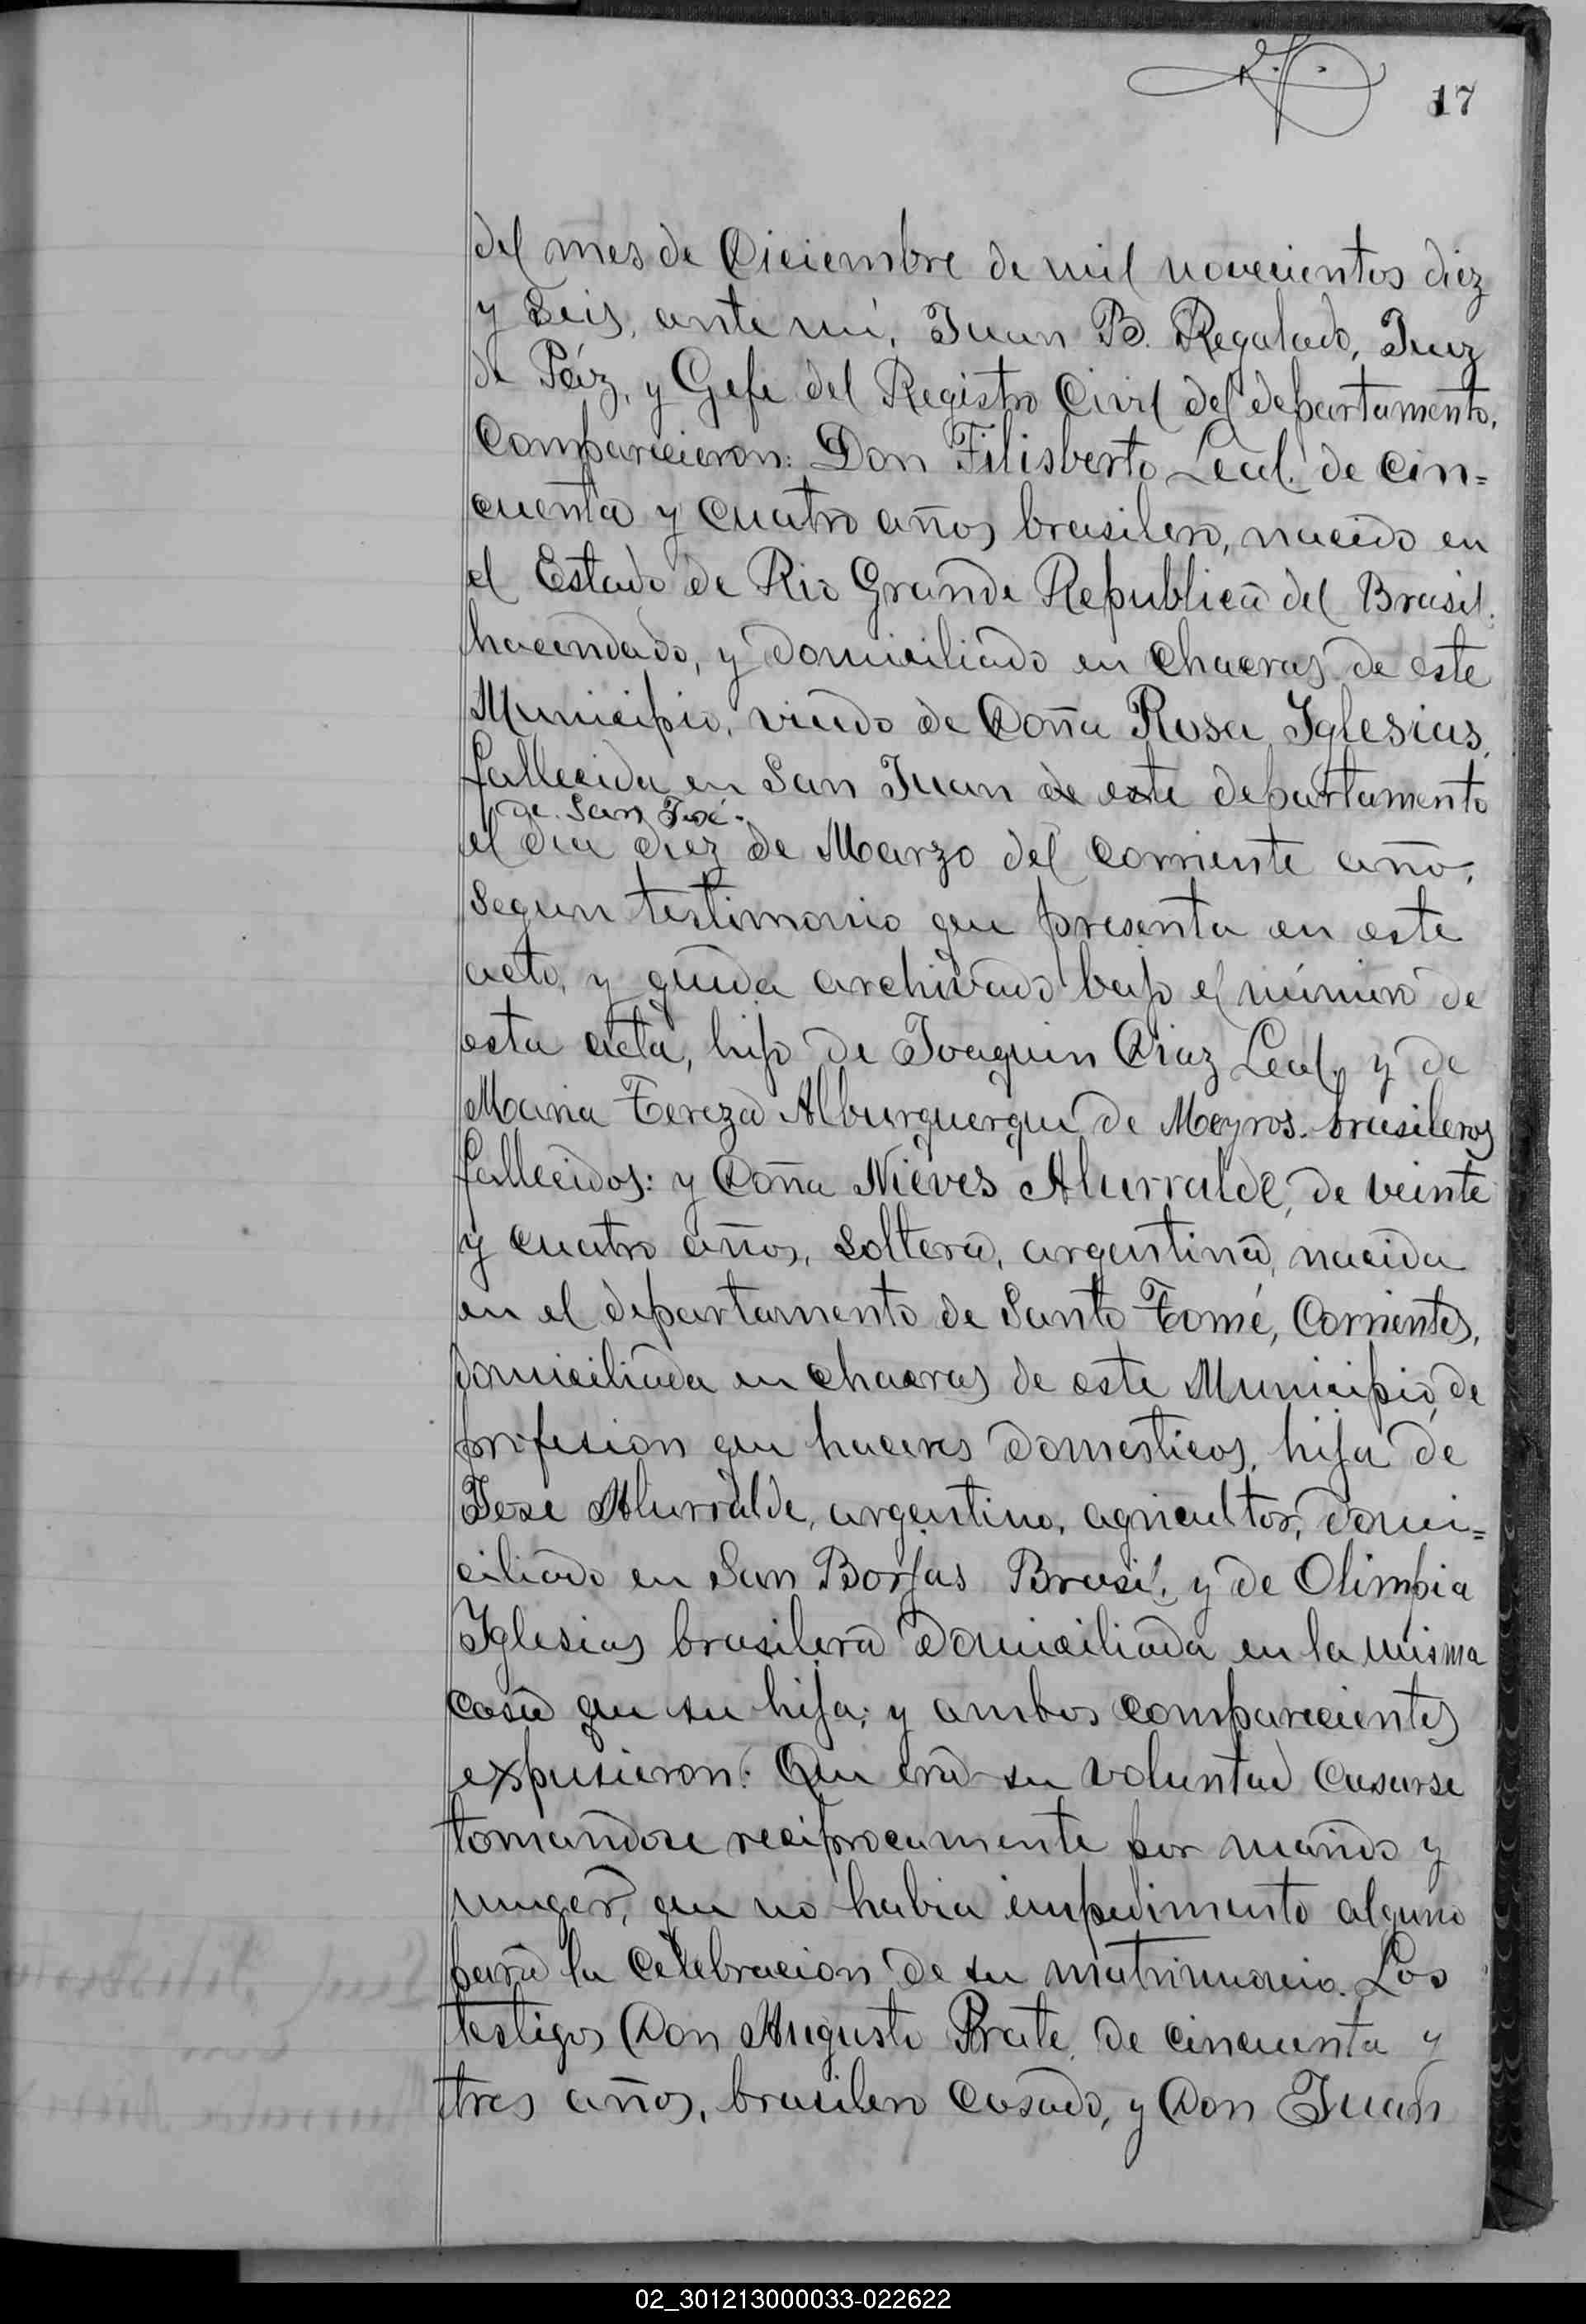 17
del mes de Diciembre de mil novecientos diez
y seis, ante mí, Juan B. Regalado, Juez
de Páz, y Gefe del Registro Civil del departamento,
Comparecieron: Don Filisberto Leal, de cin=
cuenta y cuatro años brasilero, nacido en
el Estado de Rio Grande Republica del Brasil.
hacendado, y domiciliado en chacras de este
Municipio, viudo de Doña Rosa Iglesias,
fallecida en San Juan de este departamento
de San José.
el dia diez de Marzo del corriente año,
segun testimonio que presenta en este
acto, y queda archivado bajo el número de
esta acta, hijo de Joaquin Diaz Leal, y de
Maria Tereza Alburquerque de Meyros. brasileros
fallecidos: y Doña Nieves Alurralde, de veinte
y cuatro años, soltera, argentina, nacida
en el departamento de Santo Tomé, Corrientes,
domiciliada en chacras de este Municipio, de
profesion que haceres domesticos, hija de
Jose Alurralde, argentino, agricultor, domi=
ciliado en San Borjas Brasil, y de Olimpia
Iglesias brasilera domiciliada en la misma
casa que su hija; y ambos comparecientes
expusieron: Que era su voluntad casarse
tomandose reciprocamente por marido y
muger, que no habia impedimento alguno
para la celebracion de su matrimonio. Los
testigos Don Augusto Prate, de cincuenta y
tres años, brasilero casado, y Don Juan
02_301213000033-022622